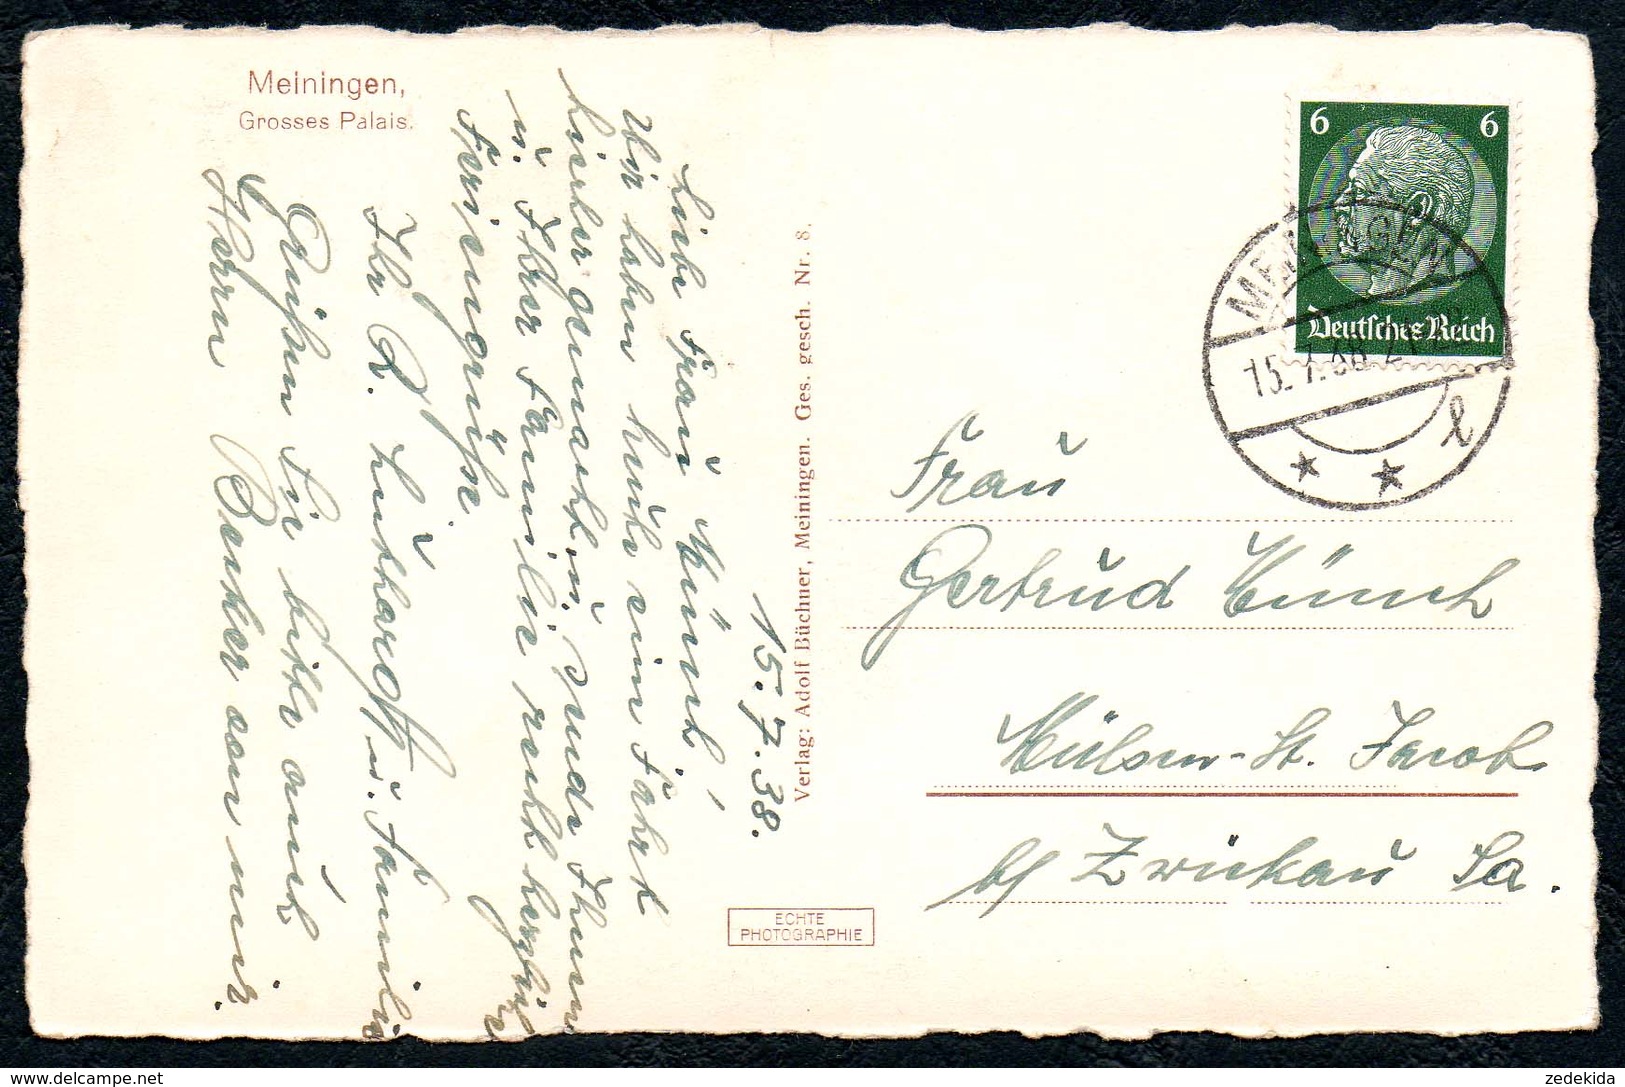 Meiningen,
Grosses Palais.
15.7.38.
Liebe Frau Münch!
Wir haben heute eine Fahrt
hierher gemacht u. sende Ihnen
u. Ihrer Familie recht herzliche
Feriengrüße.
Ihr R. Liebhardt u. Familie
Grüßen Sie bitte auch
Herrn Becker von mir.
Verlag: Adolf Büchner, Meiningen. Ges. gesch. Nr. 8.
ECHTE
PHOTOGRAPHIE
6 6
Deutsches Reich
MEININGEN
15.7.38
Frau
Gertrud Münch
Mülsen-St. Jacob
b/ Zwickau Sa.
zedekida